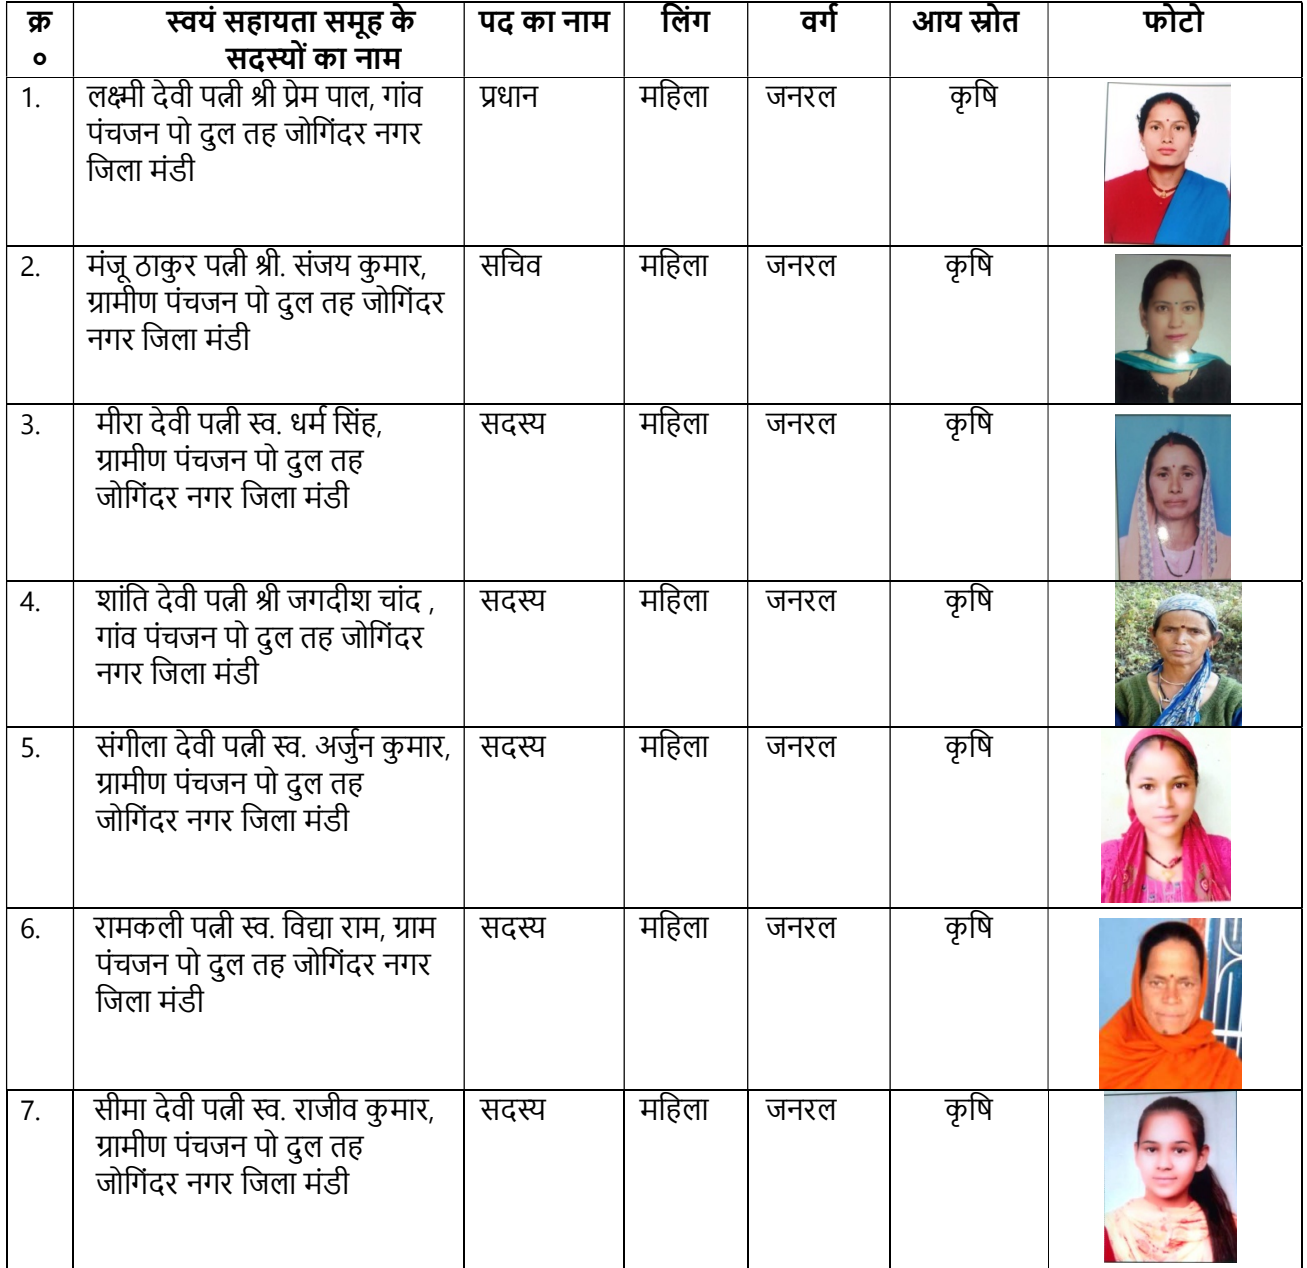 क्र
०
स्वयं सहायता समूह के
सदस्यों का नाम
पद का नाम
लिंग
वर्ग
आय स्रोत
फोटो
1.
लक्ष्मी देवी पत्नी श्री प्रेम पाल, गांव
पंचजन पो दुल तह जोगिंदर नगर
जिला मंडी
प्रधान
महिला
जनरल
कृषि
2.
मंजू ठाकुर पत्नी श्री. संजय कुमार,
ग्रामीण पंचजन पो दुल तह जोगिंदर
नगर जिला मंडी
सचिव
महिला
जनरल
कृषि
3.
मीरा देवी पत्नी स्व. धर्म सिंह,
ग्रामीण पंचजन पो दुल तह
जोगिंदर नगर जिला मंडी
सदस्य
महिला
जनरल
कृषि
4.
शांति देवी पत्नी श्री जगदीश चांद ,
गांव पंचजन पो दुल तह जोगिंदर
नगर जिला मंडी
सदस्य
महिला
जनरल
कृषि
5.
संगीला देवी पत्नी स्व. अर्जुन कुमार,
ग्रामीण पंचजन पो दुल तह
जोगिंदर नगर जिला मंडी
सदस्य
महिला
जनरल
कृषि
6.
रामकली पत्नी स्व. विद्या राम, ग्राम
पंचजन पो दुल तह जोगिंदर नगर
जिला मंडी
सदस्य
महिला
जनरल
कृषि
7.
सीमा देवी पत्नी स्व. राजीव कुमार,
ग्रामीण पंचजन पो दुल तह
जोगिंदर नगर जिला मंडी
सदस्य
महिला
जनरल
कृषि